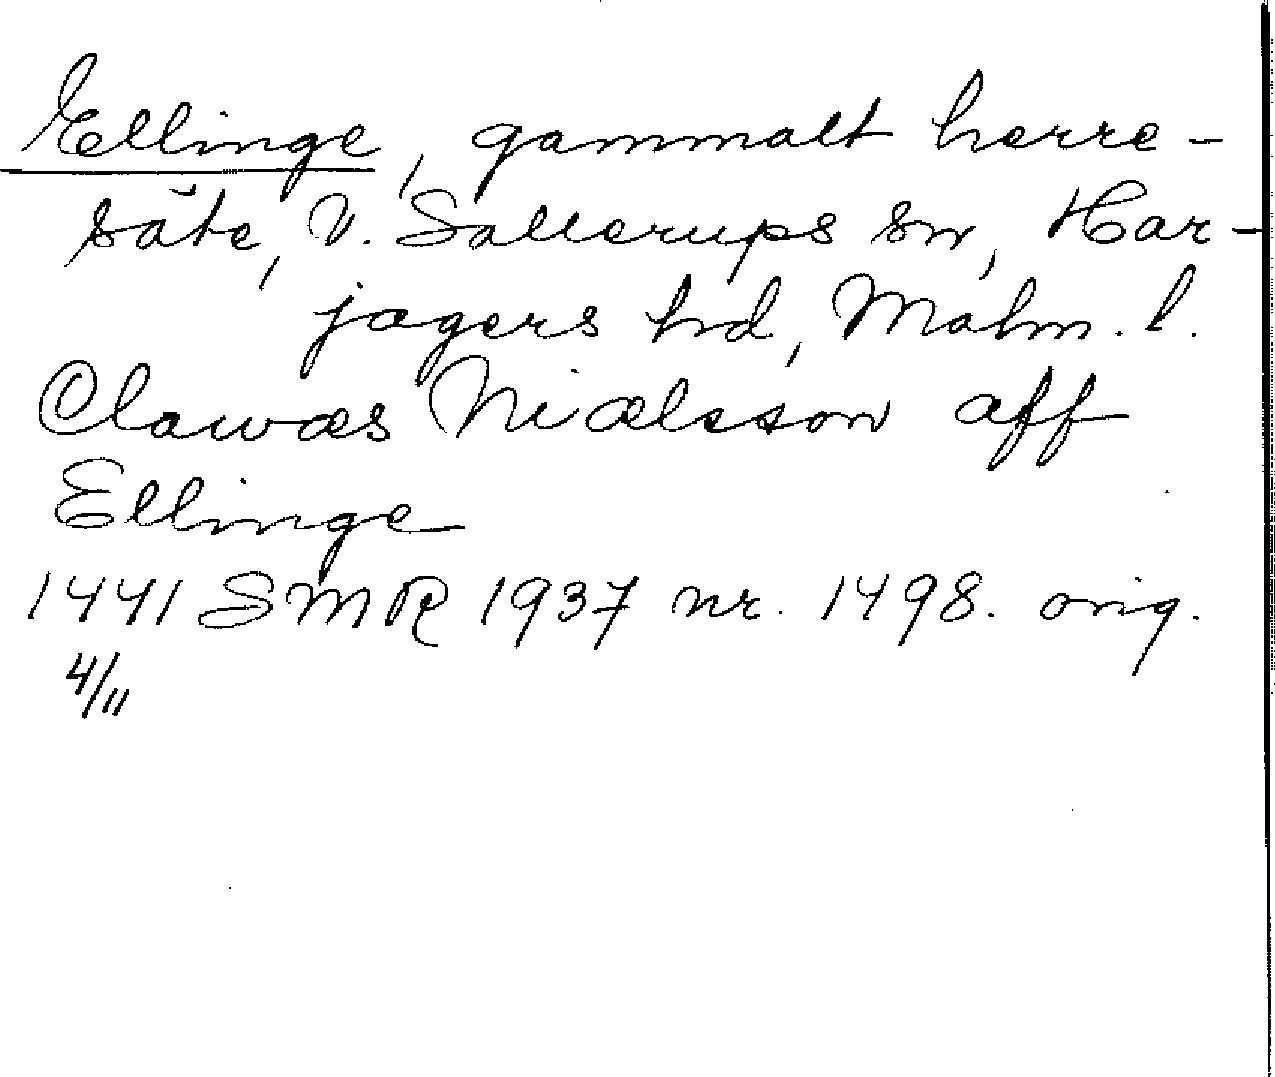 Ellinge, gammalt herre-
säte, V. Sallerups sn, Har-
jagers hd, Malm. l.
Clawæs Niælsson aff
Ellinge
1441 SMR 1937 nr. 1498. orig.
4/11